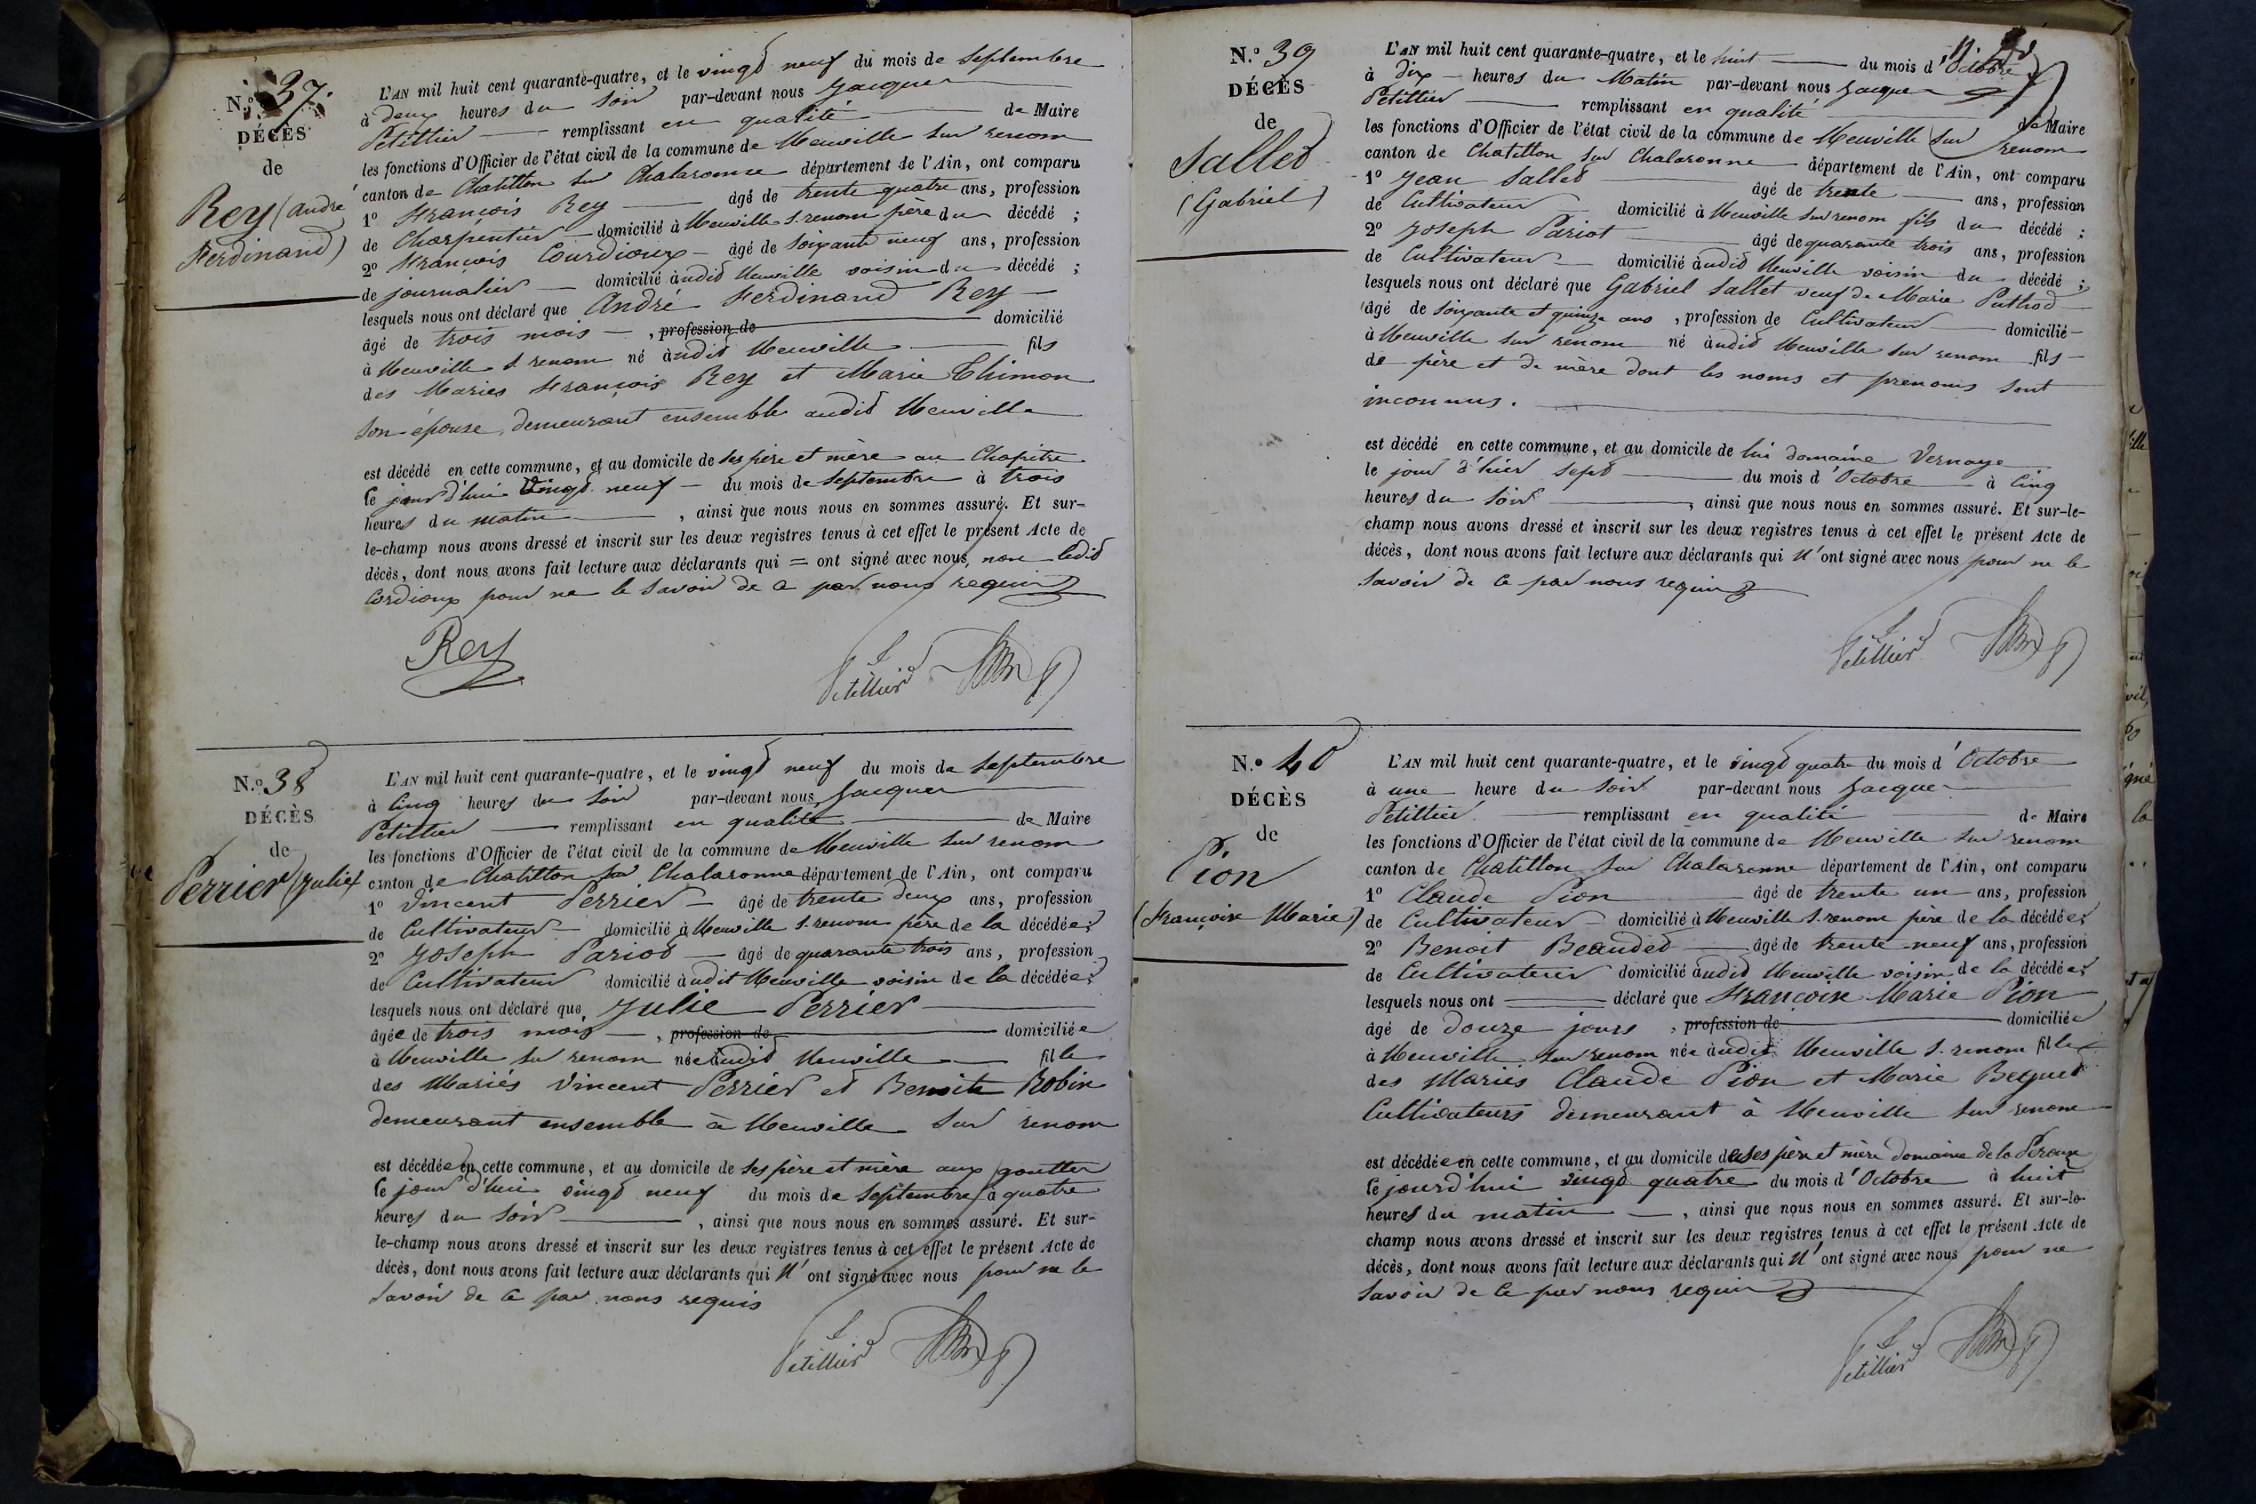 N.o 37.
DÉCÈS
de
Rey (André
Ferdinand)
L'AN mil huit cent quarante-quatre, et le vingt neuf du mois de Septembre
à deux heures du Soir par-devant nous Jacques
Petillier remplissant en qualité de Maire
les fonctions d'Officier de l'état civil de la commune de Neuville sur renom
canton de Chatillon sur Chalaronne département de l'Ain, ont comparu
1o François Rey âgé de trente quatre ans, profession
de Charpentier domicilié à Neuville s. renom père du décédé ;
2o François Courdioux âgé de soixante neuf ans, profession
de journalier domicilié audit Neuville voisin du décédé ;
lesquels nous ont déclaré que André Ferdinand Rey
âgé de trois mois , profession de domicilié
à Neuville s renom né audit Neuville fils
des Mariés François Rey et Marie Thimon
son épouse, demeurant ensemble audit Neuville
est décédé en cette commune, et au domicile de ses père et mère au Chapitre
ce jour d'hui vingt neuf du mois de septembre à trois
heures du matin , ainsi que nous nous en sommes assuré. Et sur-
le-champ nous avons dressé et inscrit sur les deux registres tenus à cet effet le présent Acte de
décès, dont nous avons fait lecture aux déclarants qui = ont signé avec nous, non ledit
Cordioux pour ne le savoir de ce par nous requis
Rey
Petillier
N.o 38
DÉCÈS
de
Perrier (Julie)
L'AN mil huit cent quarante-quatre, et le vingt neuf du mois de septembre
à cinq heures du soir par-devant nous Jacques
Petillier remplissant en qualité de Maire
les fonctions d'Officier de l'état civil de la commune de Neuville sur renom
canton de Chatillon sur Chalaronne département de l'Ain, ont comparu
1o Vincent Perrier âgé de trente deux ans, profession
de Cultivateur domicilié à Neuville s. renom père de la décédée ;
2o Joseph Pariot âgé de quarante trois ans, profession
de Cultivateur domicilié audit Neuville voisin de la décédée ;
lesquels nous ont déclaré que Julie Perrier
âgée de trois mois , profession de domiciliée
à Neuville sur renom née audit Neuville fille
des Mariés Vincent Perrier et Benoite Robin
demeurant ensemble à Neuville sur renom
est décédée en cette commune, et au domicile de ses père et mère aux goutter
ce jour d'hui vingt neuf du mois de septembre à quatre
heures du soir , ainsi que nous nous en sommes assuré. Et sur-
le-champ nous avons dressé et inscrit sur les deux registres tenus à cet effet le présent Acte de
décès, dont nous avons fait lecture aux déclarants qui n'ont signé avec nous pour ne le
savoir de ce par nous requis
Petillier
N.o 39
DÉCÈS
de
Sallet
(Gabriel)
L'AN mil huit cent quarante-quatre, et le huit du mois d'Octobre
à dix heures du Matin par-devant nous Jacques
Petillier remplissant en qualité de Maire
les fonctions d'Officier de l'état civil de la commune de Neuville sur renom
canton de Chatillon sur Chalaronne département de l'Ain, ont comparu
1o Jean Sallet âgé de trente ans, profession
de Cultivateur domicilié à Neuville sur renom fils du décédé ;
2o Joseph Pariot âgé de quarante trois ans, profession
de Cultivateur domicilié audit Neuville voisin du décédé ;
lesquels nous ont déclaré que Gabriel Sallet veuf de Marie Puthod
âgé de soixante et quinze ans , profession de Cultivateur domicilié
à Neuville sur renom né audit Neuville sur renom fils
de père et de mère dont les noms et prénoms sont
inconnus.
est décédé en cette commune, et au domicile de lui domaine Vernaye
le jour d'hier sept du mois d'Octobre à cinq
heures du soir , ainsi que nous nous en sommes assuré. Et sur-le-
champ nous avons dressé et inscrit sur les deux registres tenus à cet effet le présent Acte de
décès, dont nous avons fait lecture aux déclarants qui n'ont signé avec nous pour ne le
savoir de ce par nous requis
Petillier
N.o 40
DÉCÈS
de
Pion
(Françoise Marie)
L'AN mil huit cent quarante-quatre, et le vingt quatre du mois d'Octobre
à une heure du soir par-devant nous Jacques
Petillier remplissant en qualité de Maire
les fonctions d'Officier de l'état civil de la commune de Neuville sur renom
canton de Chatillon sur Chalaronne département de l'Ain, ont comparu
1o Claude Pion âgé de trente un ans, profession
de Cultivateur domicilié à Neuville s. renom père de la décédée ;
2o Benoit Beaudet âgé de trente neuf ans, profession
de Cultivateur domicilié audit Neuville voisin de la décédée ;
lesquels nous ont déclaré que Françoise Marie Pion
âgé de douze jours , profession de domiciliée
à Neuville sur renom née audit Neuville s. renom fille
des Mariés Claude Pion et Marie Beguet
Cultivateurs demeurant à Neuville sur renom
est décédée en cette commune, et au domicile de ses père et mère domaine de la
ce jourd'hui vingt quatre du mois d'Octobre à huit
heures du matin , ainsi que nous nous en sommes assuré. Et sur-le-
champ nous avons dressé et inscrit sur les deux registres tenus à cet effet le présent Acte de
décès, dont nous avons fait lecture aux déclarants qui n'ont signé avec nous pour ne
savoir de ce par nous requis
Petillier